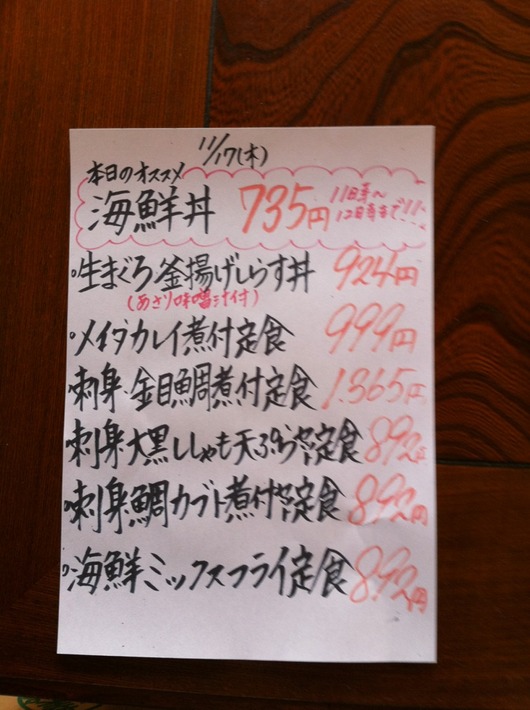 11/17(木)
本日のオススメ
海鮮丼 735円 11時~
12時まで!!
・生まぐろ釜揚げしらす丼 924円
(あさり味噌汁付)
・メイタカレイ煮付定食 999円
・刺身・金目鯛煮付定食 1.365円
・刺身・大黒ししゃも天ぷら定食 892円
・刺身・鯛カブト煮付定食 892円
・海鮮ミックスフライ定食 892円